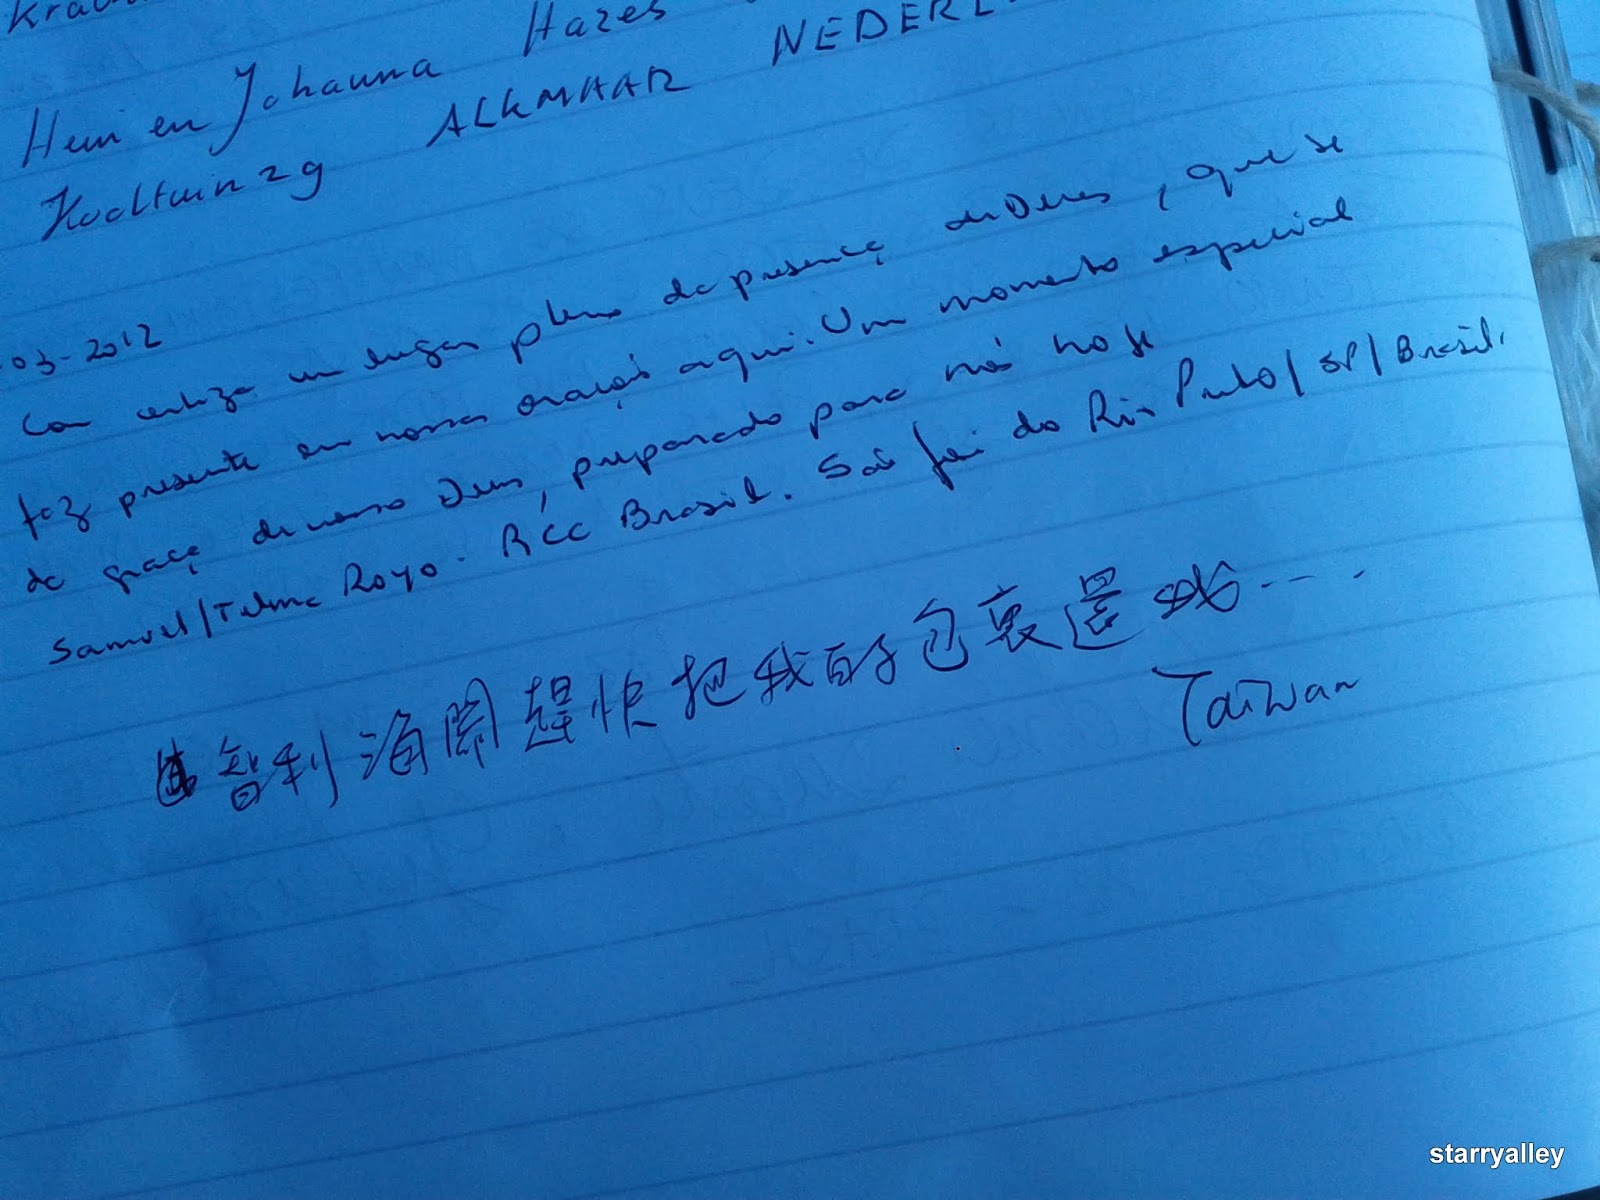 Hein en Johanna Hazes
ALKMAAR NEDERL
03-2012
Com certeza um lugar pleno da presença de Deus, que se
faz presente em nossas orações aqui. Um momento especial
da graça de nosso Deus, preparado para nós hoje
Samuel/Telma Royo. RCC Brasil. São José do Rio Preto/SP/Brasil.
智利海關趕快把我的包裹還我...
Taiwan
starryalley